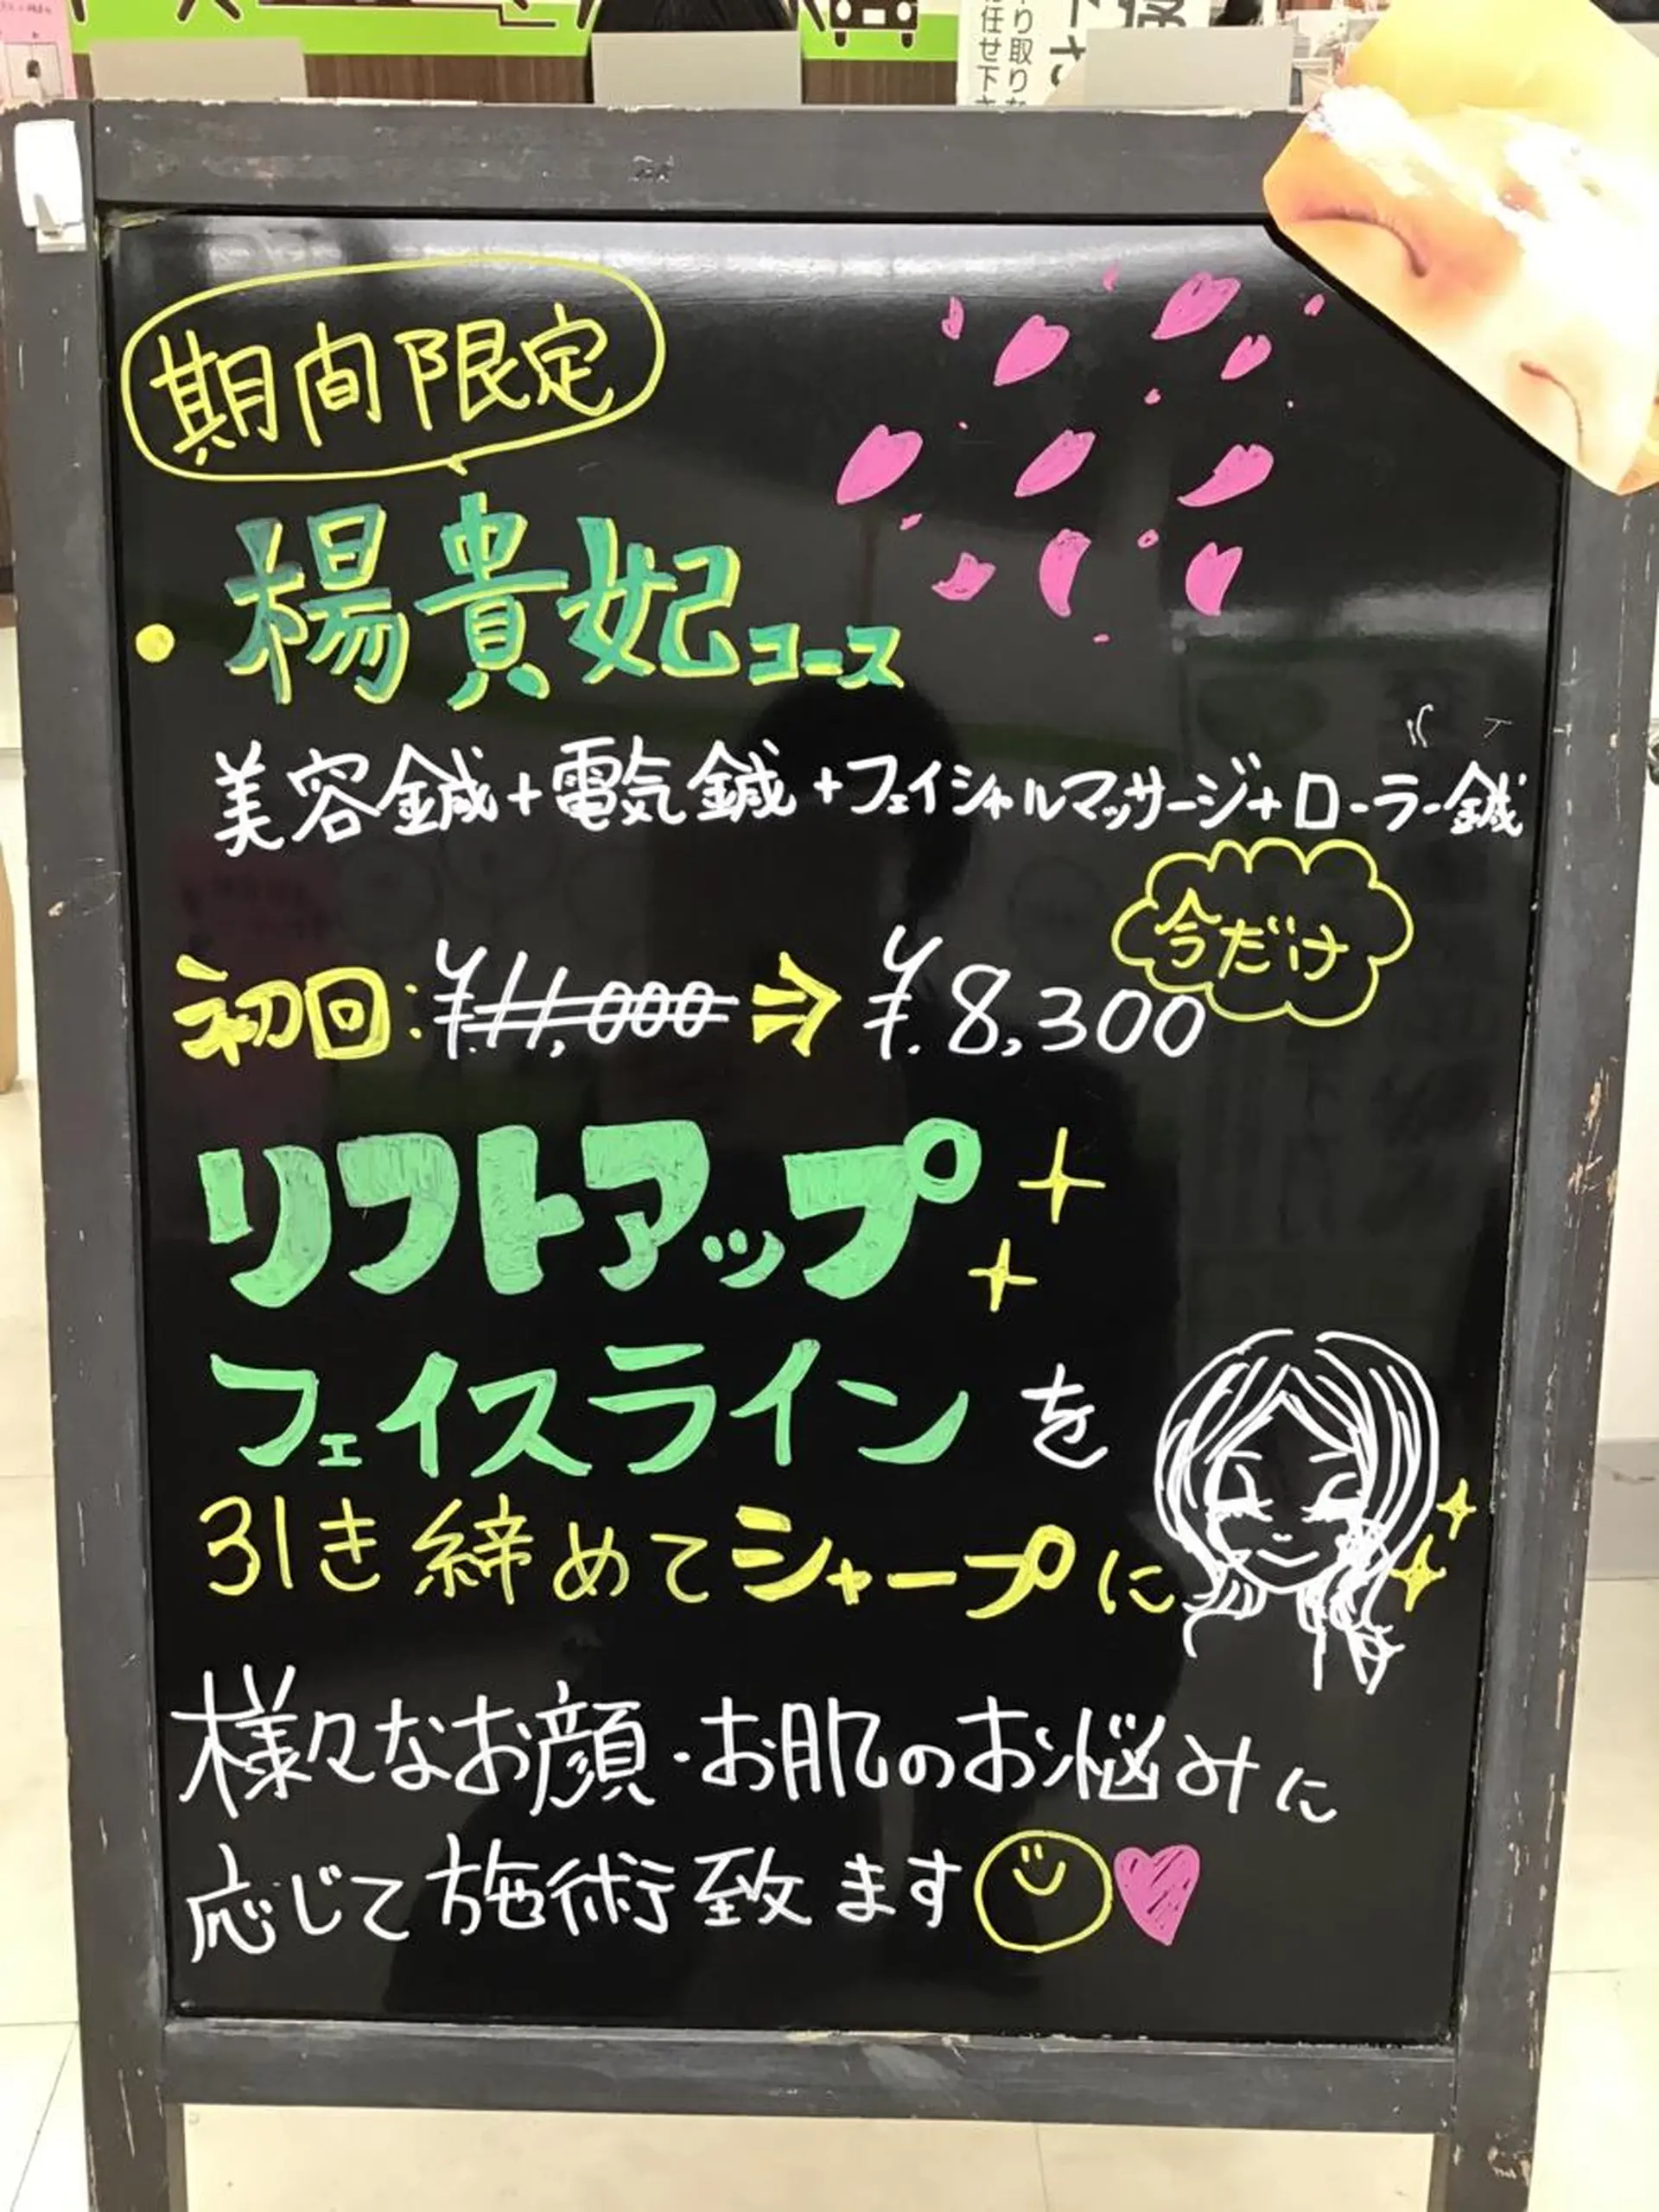 り取りな
任せ下さ
期間限定
楊貴妃コース
美容鍼+電気鍼+フェイシャルマッサージ+ローラー鍼
今だけ
初回:¥.11,000⇒¥.8,300
リフトアップ
フェイスラインを
引き締めてシャープに
様々なお顔・お肌のお悩みに
応じて施術致ます